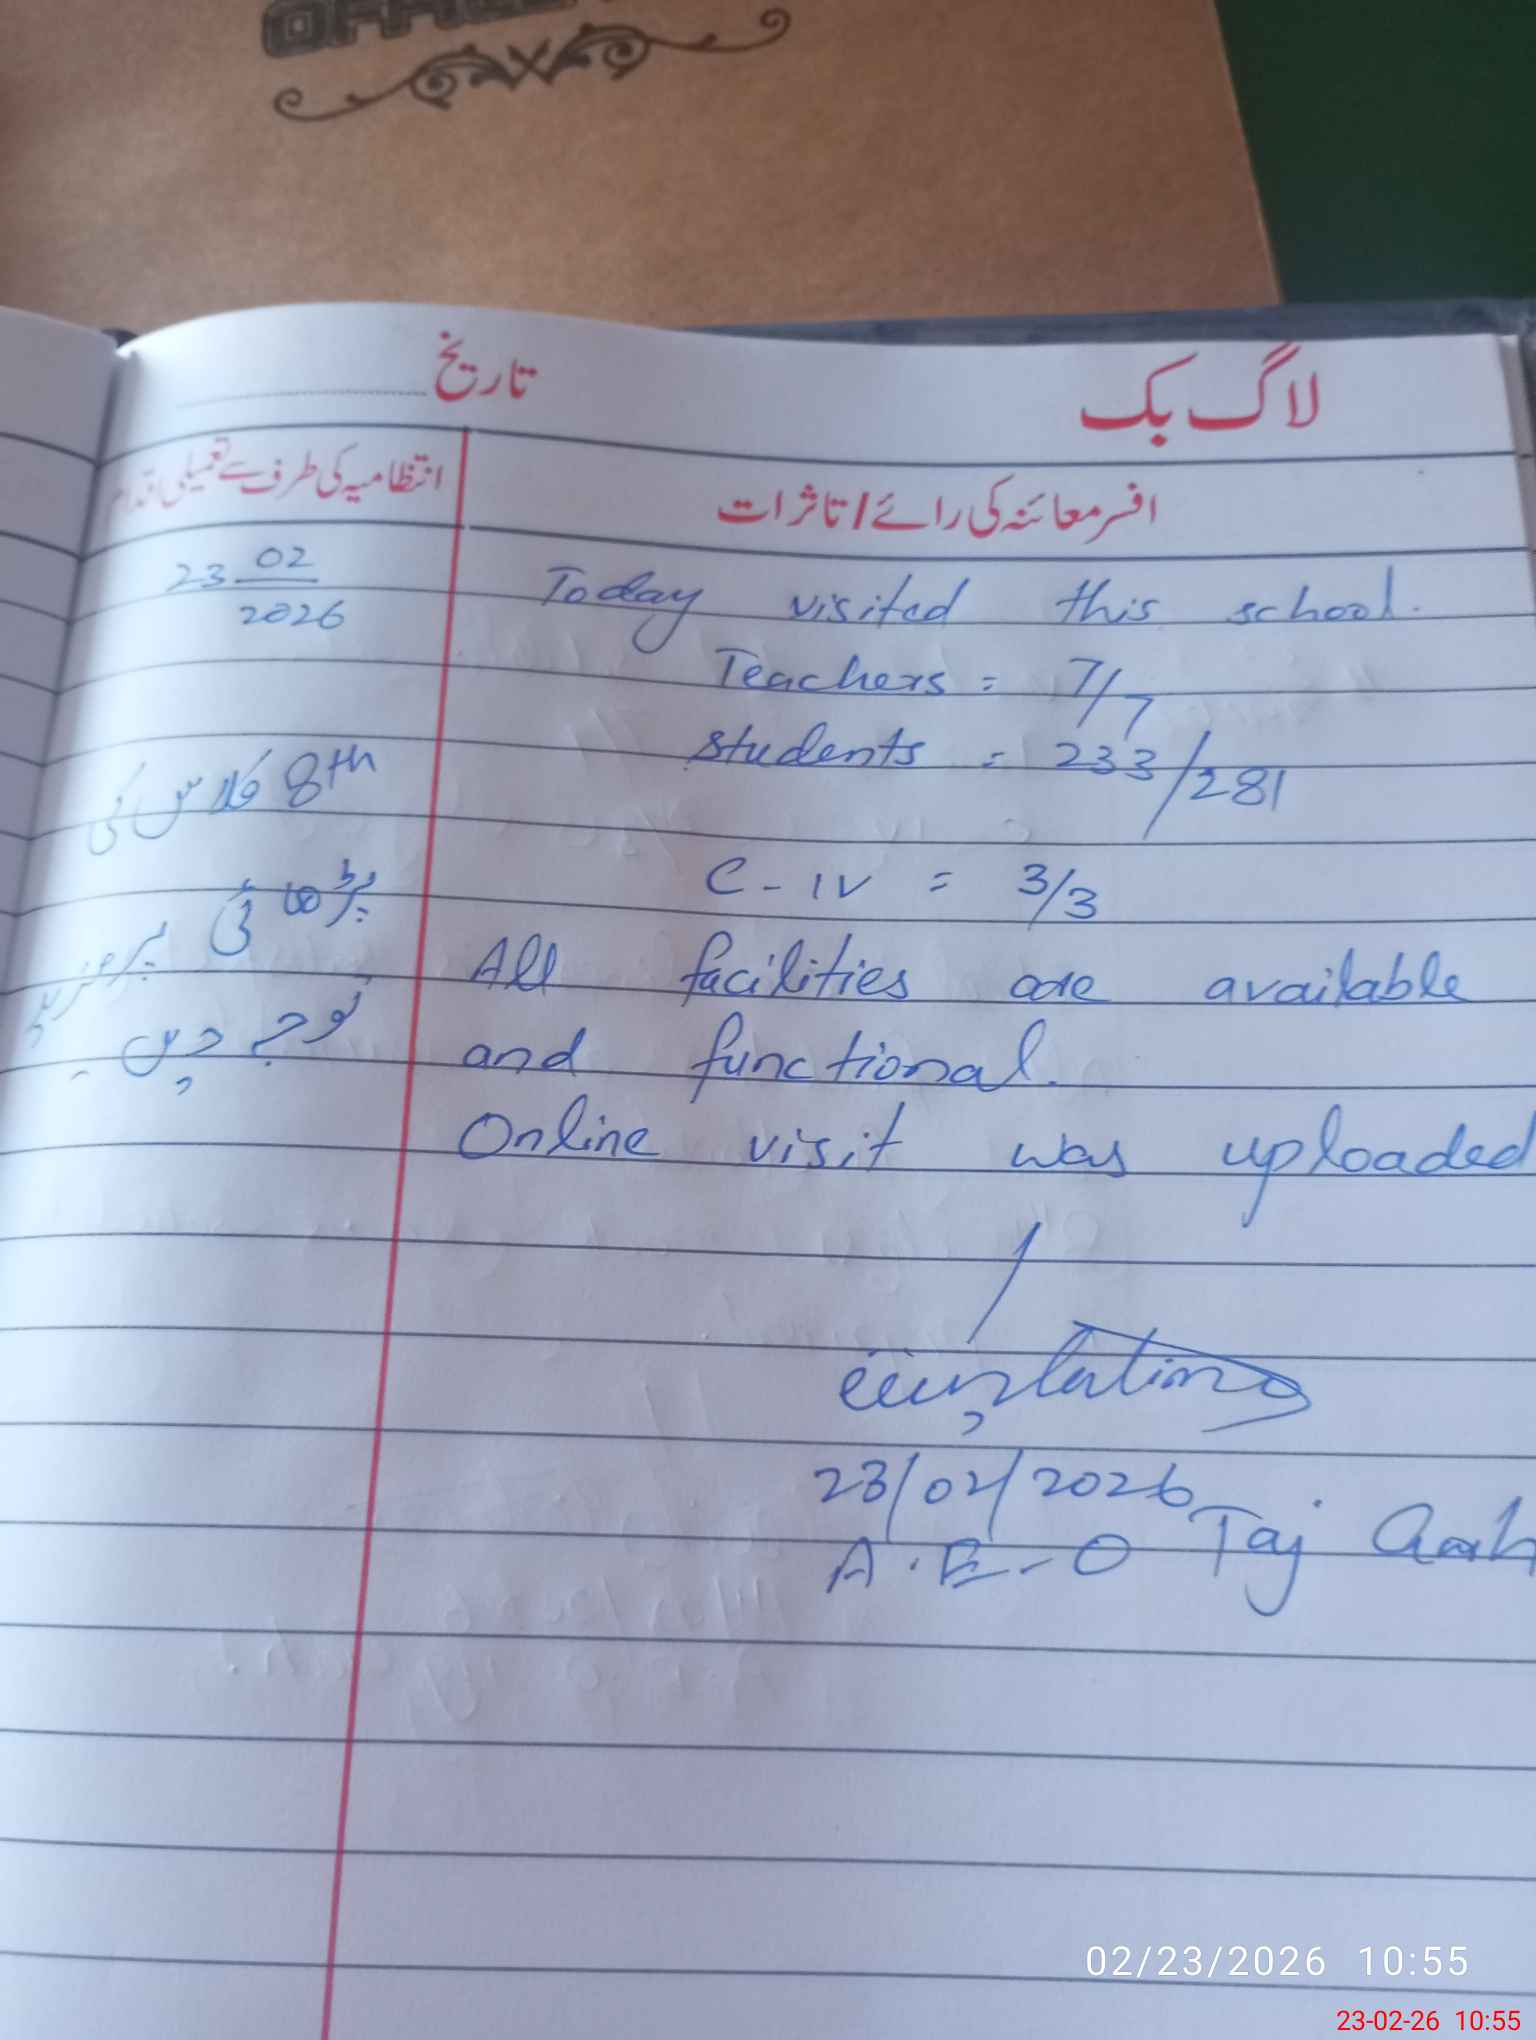 لاگ بک
تاریخ
افسر معائنہ کی رائے / تاثرات
انتظامیہ کی طرف سے تعمیلی اقدام
Today visited this school.
Teachers = 7/7
Students = 233/281
C-IV = 3/3
All facilities are available
and functional.
Online visit was uploaded
23/02/2026
A.E-O Taj
23 02
2026
8th کلاس کی
پڑھائی پر مزید
توجہ دیں ۔
02/23/2026 10:55
23-02-26 10:55